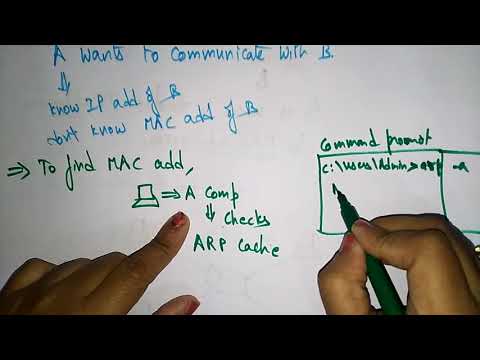 A wants to Communicate with B.
⇓
know IP add of B
don't know MAC add of B
⇒ To find MAC add,
⇒ A Comp
⇓ checks
ARP Cache
Command prompt
C:\users\Admin>arp -a